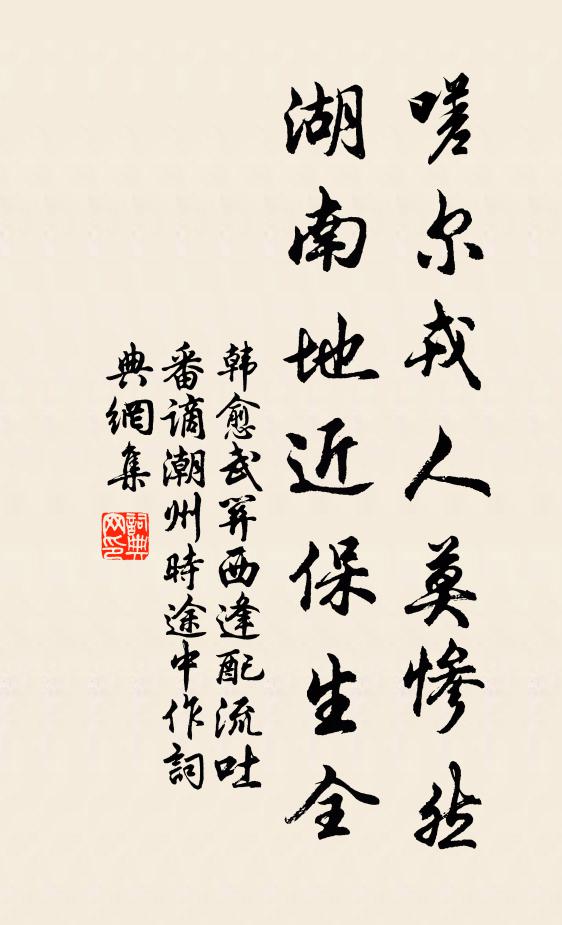 嗟尔戎人莫惨然
湖南地近保生全
韩愈武関西逢配流吐
番谪潮州時途中作詞
典網集
詞典网印